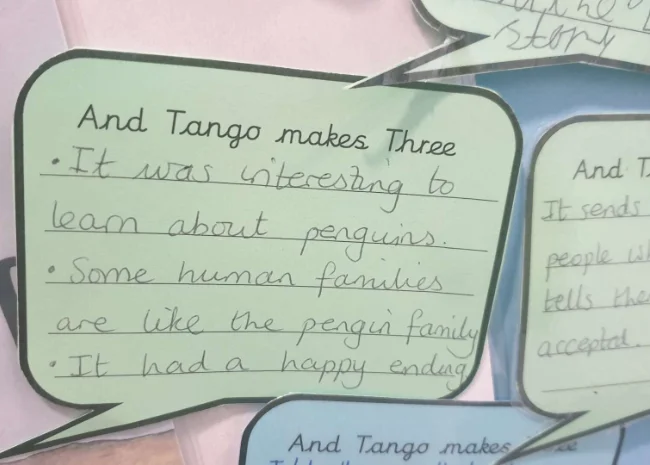 story
And Tango makes Three
• It was interesting to
learn about penguins.
• Some human families
are like the pengin family
• It had a happy ending
And
It sends
people
tells
accepted.
And Tango makes